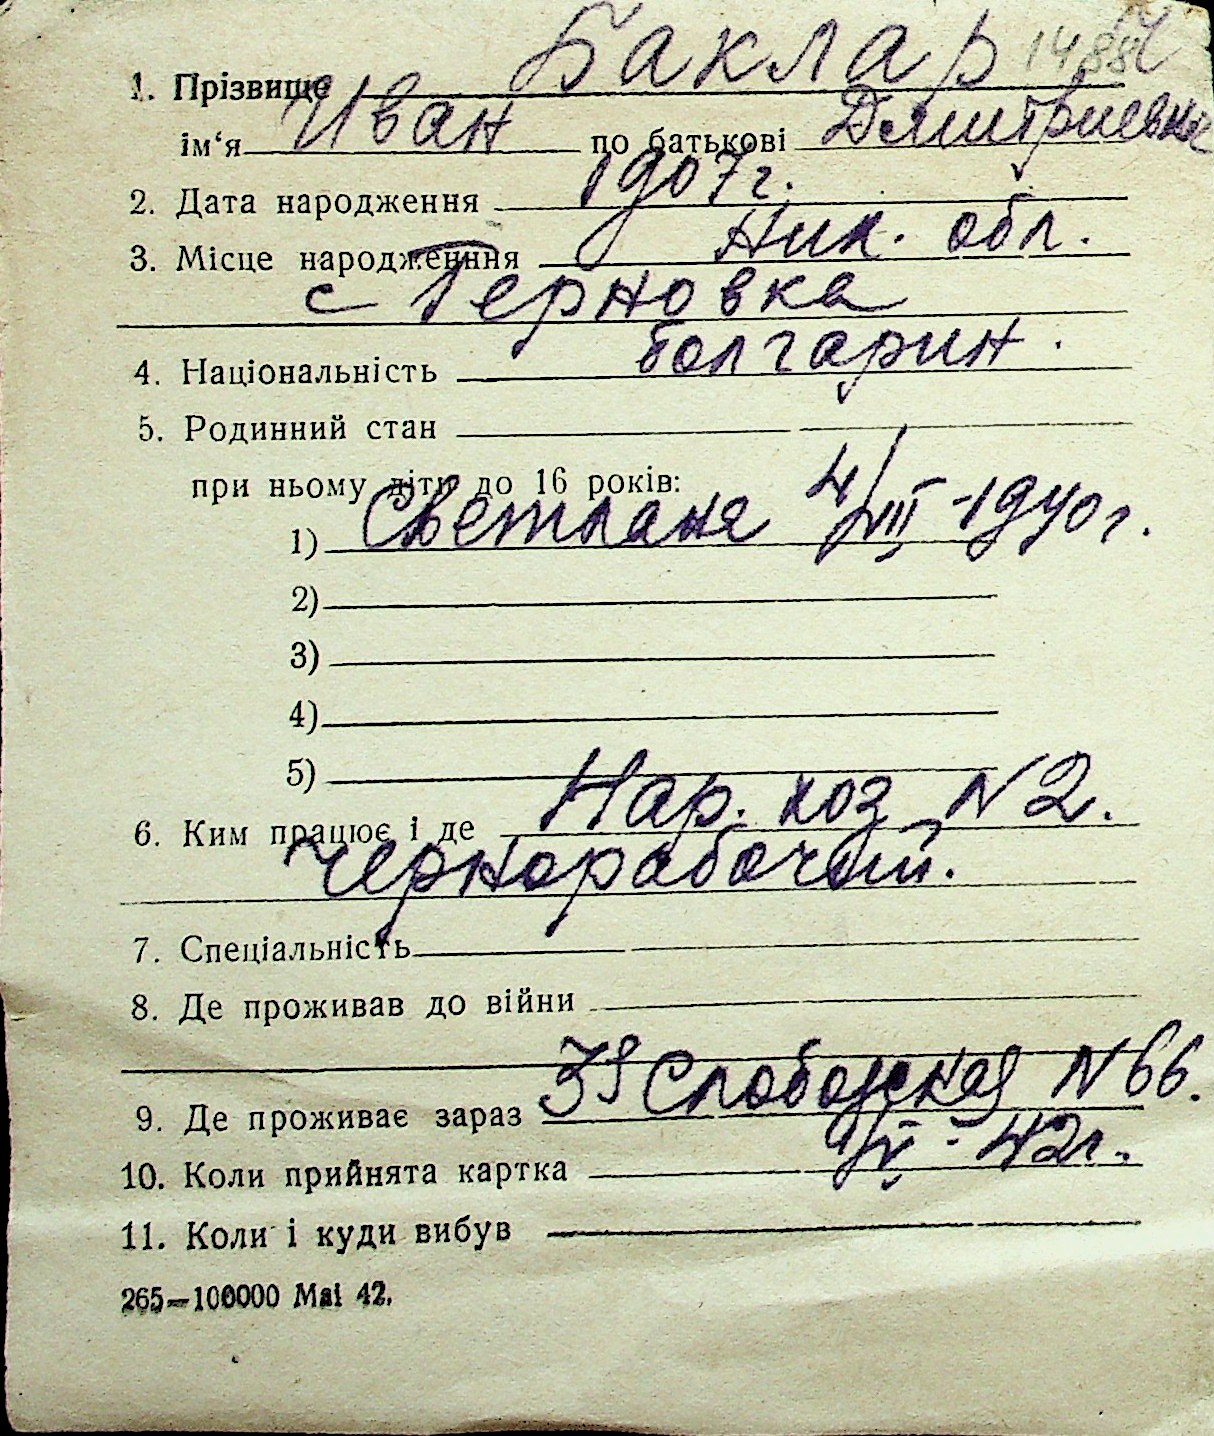 1488
1. Прізвище Баклар
ім‘я Иван по батькові Дмитриевич
2. Дата народження 1907 г.
3. Місце народженння Ник. обл.
с Терновка
4. Національність болгарин.
5. Родинний стан
при ньому діти до 16 років:
1) Светлана 4/VIII-1940 г.
2)
3)
4)
5)
6. Ким працює і де Нар. хоз N2.
Чернорабочий.
7. Спеціальність
8. Де проживав до війни
9. Де проживає зараз Слободская N 66.
10. Коли прийнята картка - 42 г.
11. Коли і куди вибув
265—100000 Mai 42.